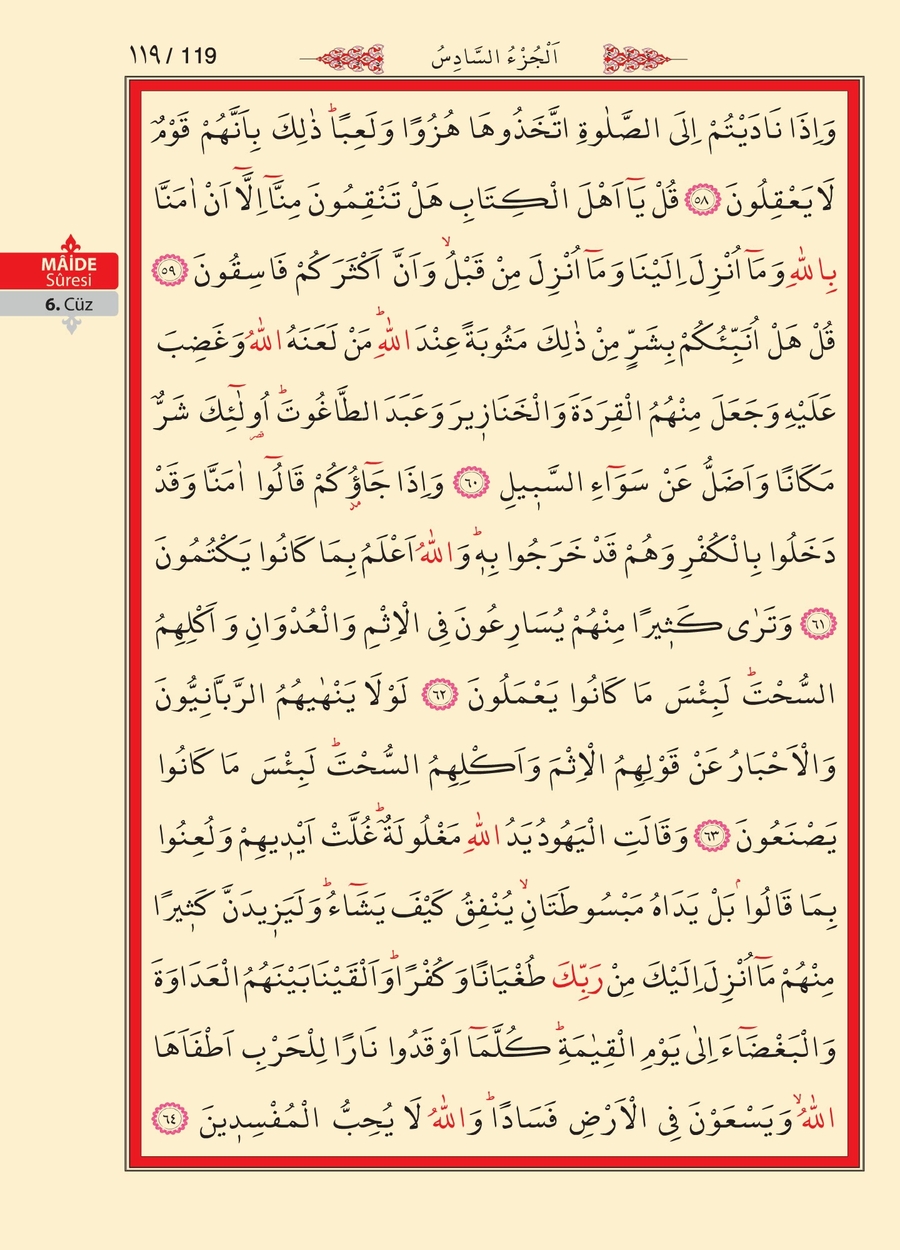 ١١٩ / 119
اَلْجُزْءُ السَّادِسُ
MÂİDE
Sûresi
6. Cüz
وَاِذَا نَادَيْتُمْ اِلَى الصَّلٰوةِ اتَّخَذُوهَا هُزُوًا وَلَعِبًاۜ ذٰلِكَ بِاَنَّهُمْ قَوْمٌ
لَا يَعْقِلُونَ ﴿٥٨﴾ قُلْ يَٓا اَهْلَ الْكِتَابِ هَلْ تَنْقِمُونَ مِنَّٓا اِلَّٓا اَنْ اٰمَنَّا
بِاللّٰهِ وَمَٓا اُنْزِلَ اِلَيْنَا وَمَٓا اُنْزِلَ مِنْ قَبْلُۙ وَاَنَّ اَكْثَرَكُمْ فَاسِقُونَ ﴿٥٩﴾
قُلْ هَلْ اُنَبِّئُكُمْ بِشَرٍّ مِنْ ذٰلِكَ مَثُوبَةً عِنْدَ اللّٰهِۜ مَنْ لَعَنَهُ اللّٰهُ وَغَضِبَ
عَلَيْهِ وَجَعَلَ مِنْهُمُ الْقِرَدَةَ وَالْخَنَاز۪يرَ وَعَبَدَ الطَّاغُوتَۜ اُو۬لٰٓئِكَ شَرٌّ
قصر
مَكَانًا وَاَضَلُّ عَنْ سَوَٓاءِ السَّب۪يلِ ﴿٦٠﴾ وَاِذَا جَٓاؤُ۫كُمْ قَالُٓوا اٰمَنَّا وَقَدْ
مد
دَخَلُوا بِالْكُفْرِ وَهُمْ قَدْ خَرَجُوا بِه۪ۜ وَاللّٰهُ اَعْلَمُ بِمَا كَانُوا يَكْتُمُونَ
﴿٦١﴾ وَتَرٰى كَث۪يرًا مِنْهُمْ يُسَارِعُونَ فِى الْاِثْمِ وَالْعُدْوَانِ وَ اَكْلِهِمُ
السُّحْتَۜ لَبِئْسَ مَا كَانُوا يَعْمَلُونَ ﴿٦٢﴾ لَوْلَا يَنْهٰيهُمُ الرَّبَّانِيُّونَ
وَالْاَحْبَارُ عَنْ قَوْلِهِمُ الْاِثْمَ وَاَكْلِهِمُ السُّحْتَۜ لَبِئْسَ مَا كَانُوا
يَصْنَعُونَ ﴿٦٣﴾ وَقَالَتِ الْيَهُودُ يَدُ اللّٰهِ مَغْلُولَةٌۜ غُلَّتْ اَيْد۪يهِمْ وَلُعِنُوا
بِمَا قَالُواۢ بَلْ يَدَاهُ مَبْسُوطَتَانِۙ يُنْفِقُ كَيْفَ يَشَٓاءُۜ وَلَيَز۪يدَنَّ كَث۪يرًا
مِنْهُمْ مَٓا اُنْزِلَ اِلَيْكَ مِنْ رَبِّكَ طُغْيَانًا وَكُفْرًاۜ وَاَلْقَيْنَا بَيْنَهُمُ الْعَدَاوَةَ
وَالْبَغْضَٓاءَ اِلٰى يَوْمِ الْقِيٰمَةِۜ كُلَّمَٓا اَوْقَدُوا نَارًا لِلْحَرْبِ اَطْفَاَهَا
اللّٰهُۙ وَيَسْعَوْنَ فِى الْاَرْضِ فَسَادًاۜ وَاللّٰهُ لَا يُحِبُّ الْمُفْسِد۪ينَ ﴿٦٤﴾